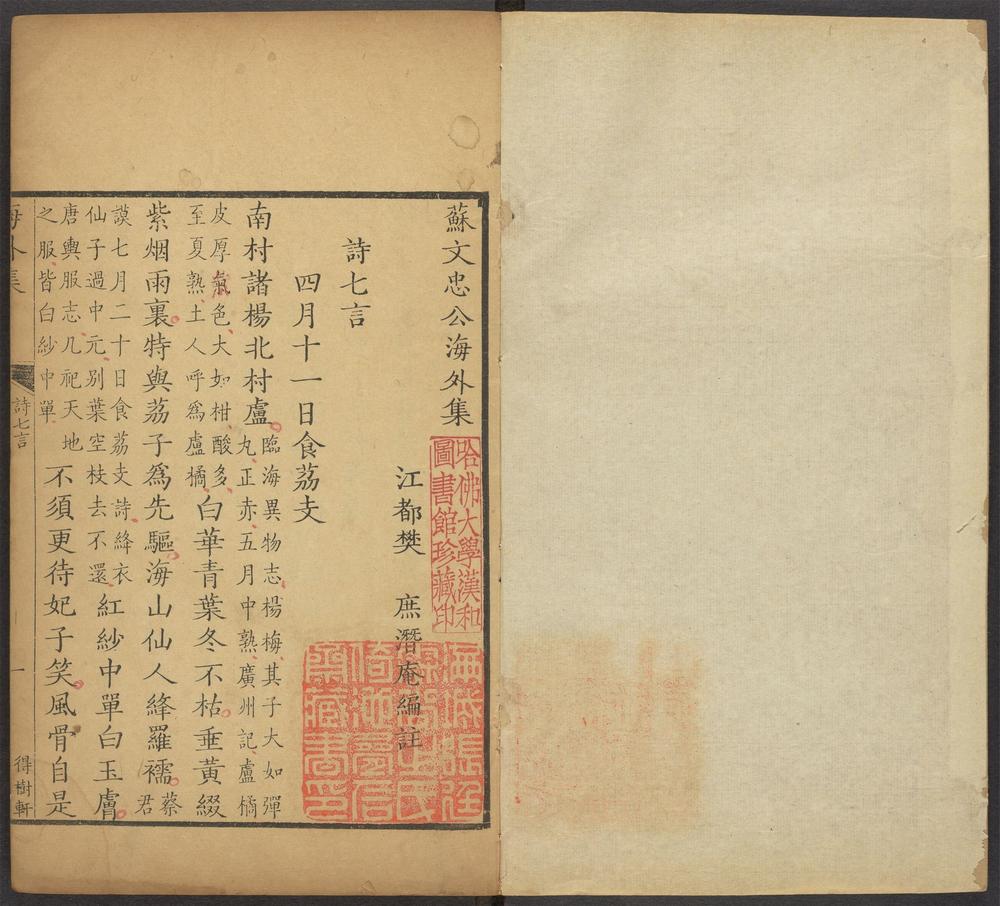 蘇文忠公海外集
哈佛大學漢和
圖書館珍藏印
江都樊 庶潛庵編註
詩七言
四月十一日食荔支
南村諸楊北村盧
臨海異物志楊梅其子大如彈
丸正赤五月中熟廣州記盧橘
皮厚氣色大如柑酸多
至夏熟土人呼爲盧橘
白華青葉冬不枯垂黃綴
紫烟雨裏特與荔子爲先驅海山仙人絳羅襦
蔡
君
謨七月二十日食荔支詩絳衣
仙子過中元別葉空枝去不還
紅紗中單白玉膚
唐輿服志凡祀天地
之服皆白紗中單
不須更待妃子笑風骨自是
海外集
詩七言
一
得樹軒